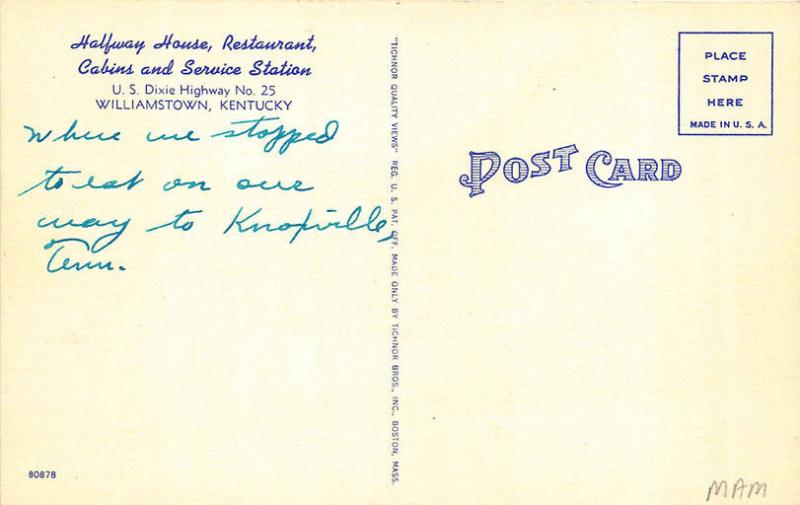 Halfway House, Restaurant,
Cabins and Service Station
U. S. Dixie Highway No. 25
WILLIAMSTOWN, KENTUCKY
Where we stopped
to eat on our
way to Knoxville,
Tenn.
80878
"TICHNOR QUALITY VIEWS" REG. U. S. PAT. OFF. MADE ONLY BY TICHNOR BROS., INC., BOSTON, MASS.
POST CARD
PLACE
STAMP
HERE
MADE IN U. S. A.
MAM